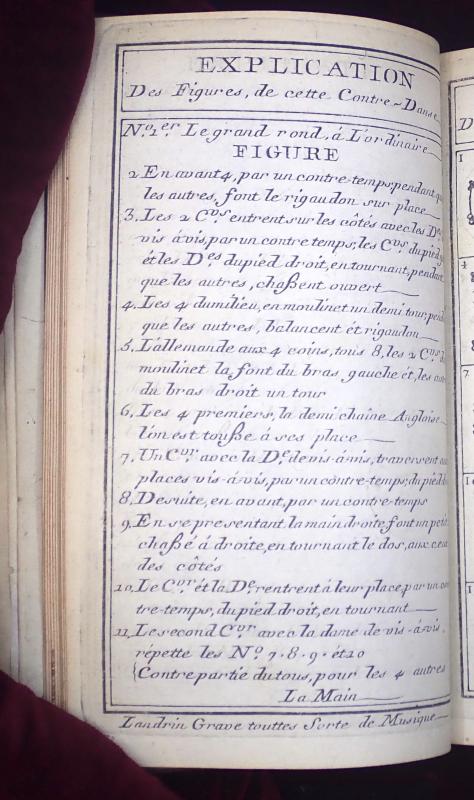 EXPLICATION
Des Figures, de cette Contre-Danse
N.o 1.er Le grand rond, á L'ordinaire
FIGURE
2 En avant 4, par un contre-temps, pendant que
les autres, font le rigaudon sur place
3. Les 2 C.vrs entrent sur les côtés avec les D.es
vis ávis, par un contre temps, les C.vrs du pied
ét les D.es du pied droit, en tournant, pendant
que les autres, chaßent ouvert
4. Les 4 du milieu, en moulinet un demi tour, pend
que les autres, balancent ét rigaudon
5. L'allemande aux 4 coins, tous 8, les 2 C.vrs
moulinet la font du bras gauche ét, les
du bras droit un tour
6. Les 4 premiers, la demi chaîne Anglaise
l'on est touße á ses place
7. Un C.vr avec la D.e de vis-á-vis, traversent
places vis-á-vis, par un contre-temps, du pied
8. De suite, en avant, par un contre-temps
9. En se présentant la main droite, font un petit
chaßé á droite, en tournant le dos, aux
des côtes
10. Le C.vr ét la D.e rentrent á leur place, par un con
tre-temps, du pied droit, en tournant
11. Le second C.vr avec la dame de vis-ávis,
répette les N.o 7.8.9. ét 10
Contre partie du tous, pour les 4 autres
La Main
Landrin Grave touttes Sorte de Musique